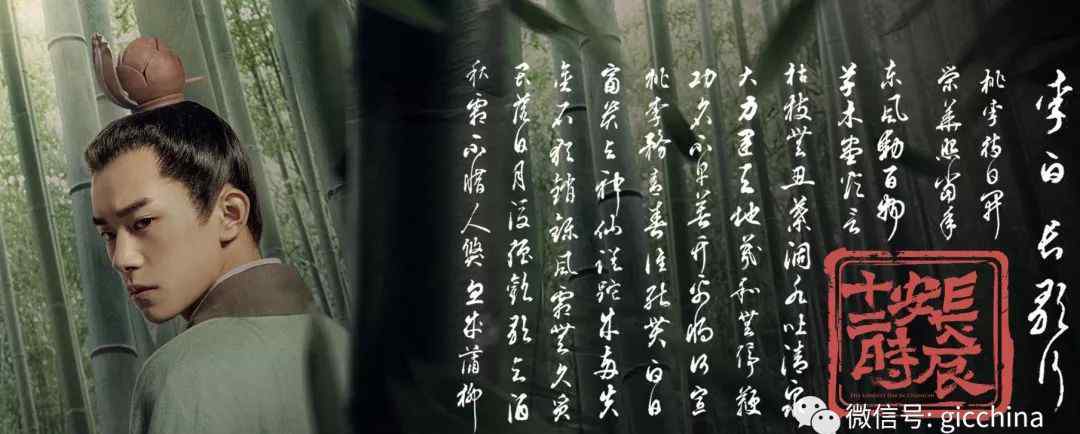 李白 长歌行
桃李待日開
榮華照當年
东風動百物
草木盡欲言
枯枝無丑葉涸水吐清泉
大力運天地羲和無停鞭
功名不早著竹帛將何宣
桃李務青春誰能貰白日
富貴与神仙蹉跎成兩失
金石猶銷鑠風霜無久質
畏落日月後強歡歌与酒
秋霜不惜人倏忽侵蒲柳
長安十二時辰
THE LONGEST DAY IN CHANG'AN
微信号: gicchina